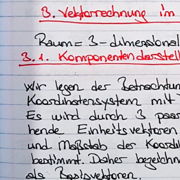 3. Vektorrechnung im
Raum = 3-dimensional
3.1. Komponentendarstell
Wir legen der Betrachtun
Koordinatensystem mit
Es wird durch 3 paar
hende Einheitsvektoren
und Maßstab der Koord
bestimmt. Daher bezeichn
als Basisvektoren.